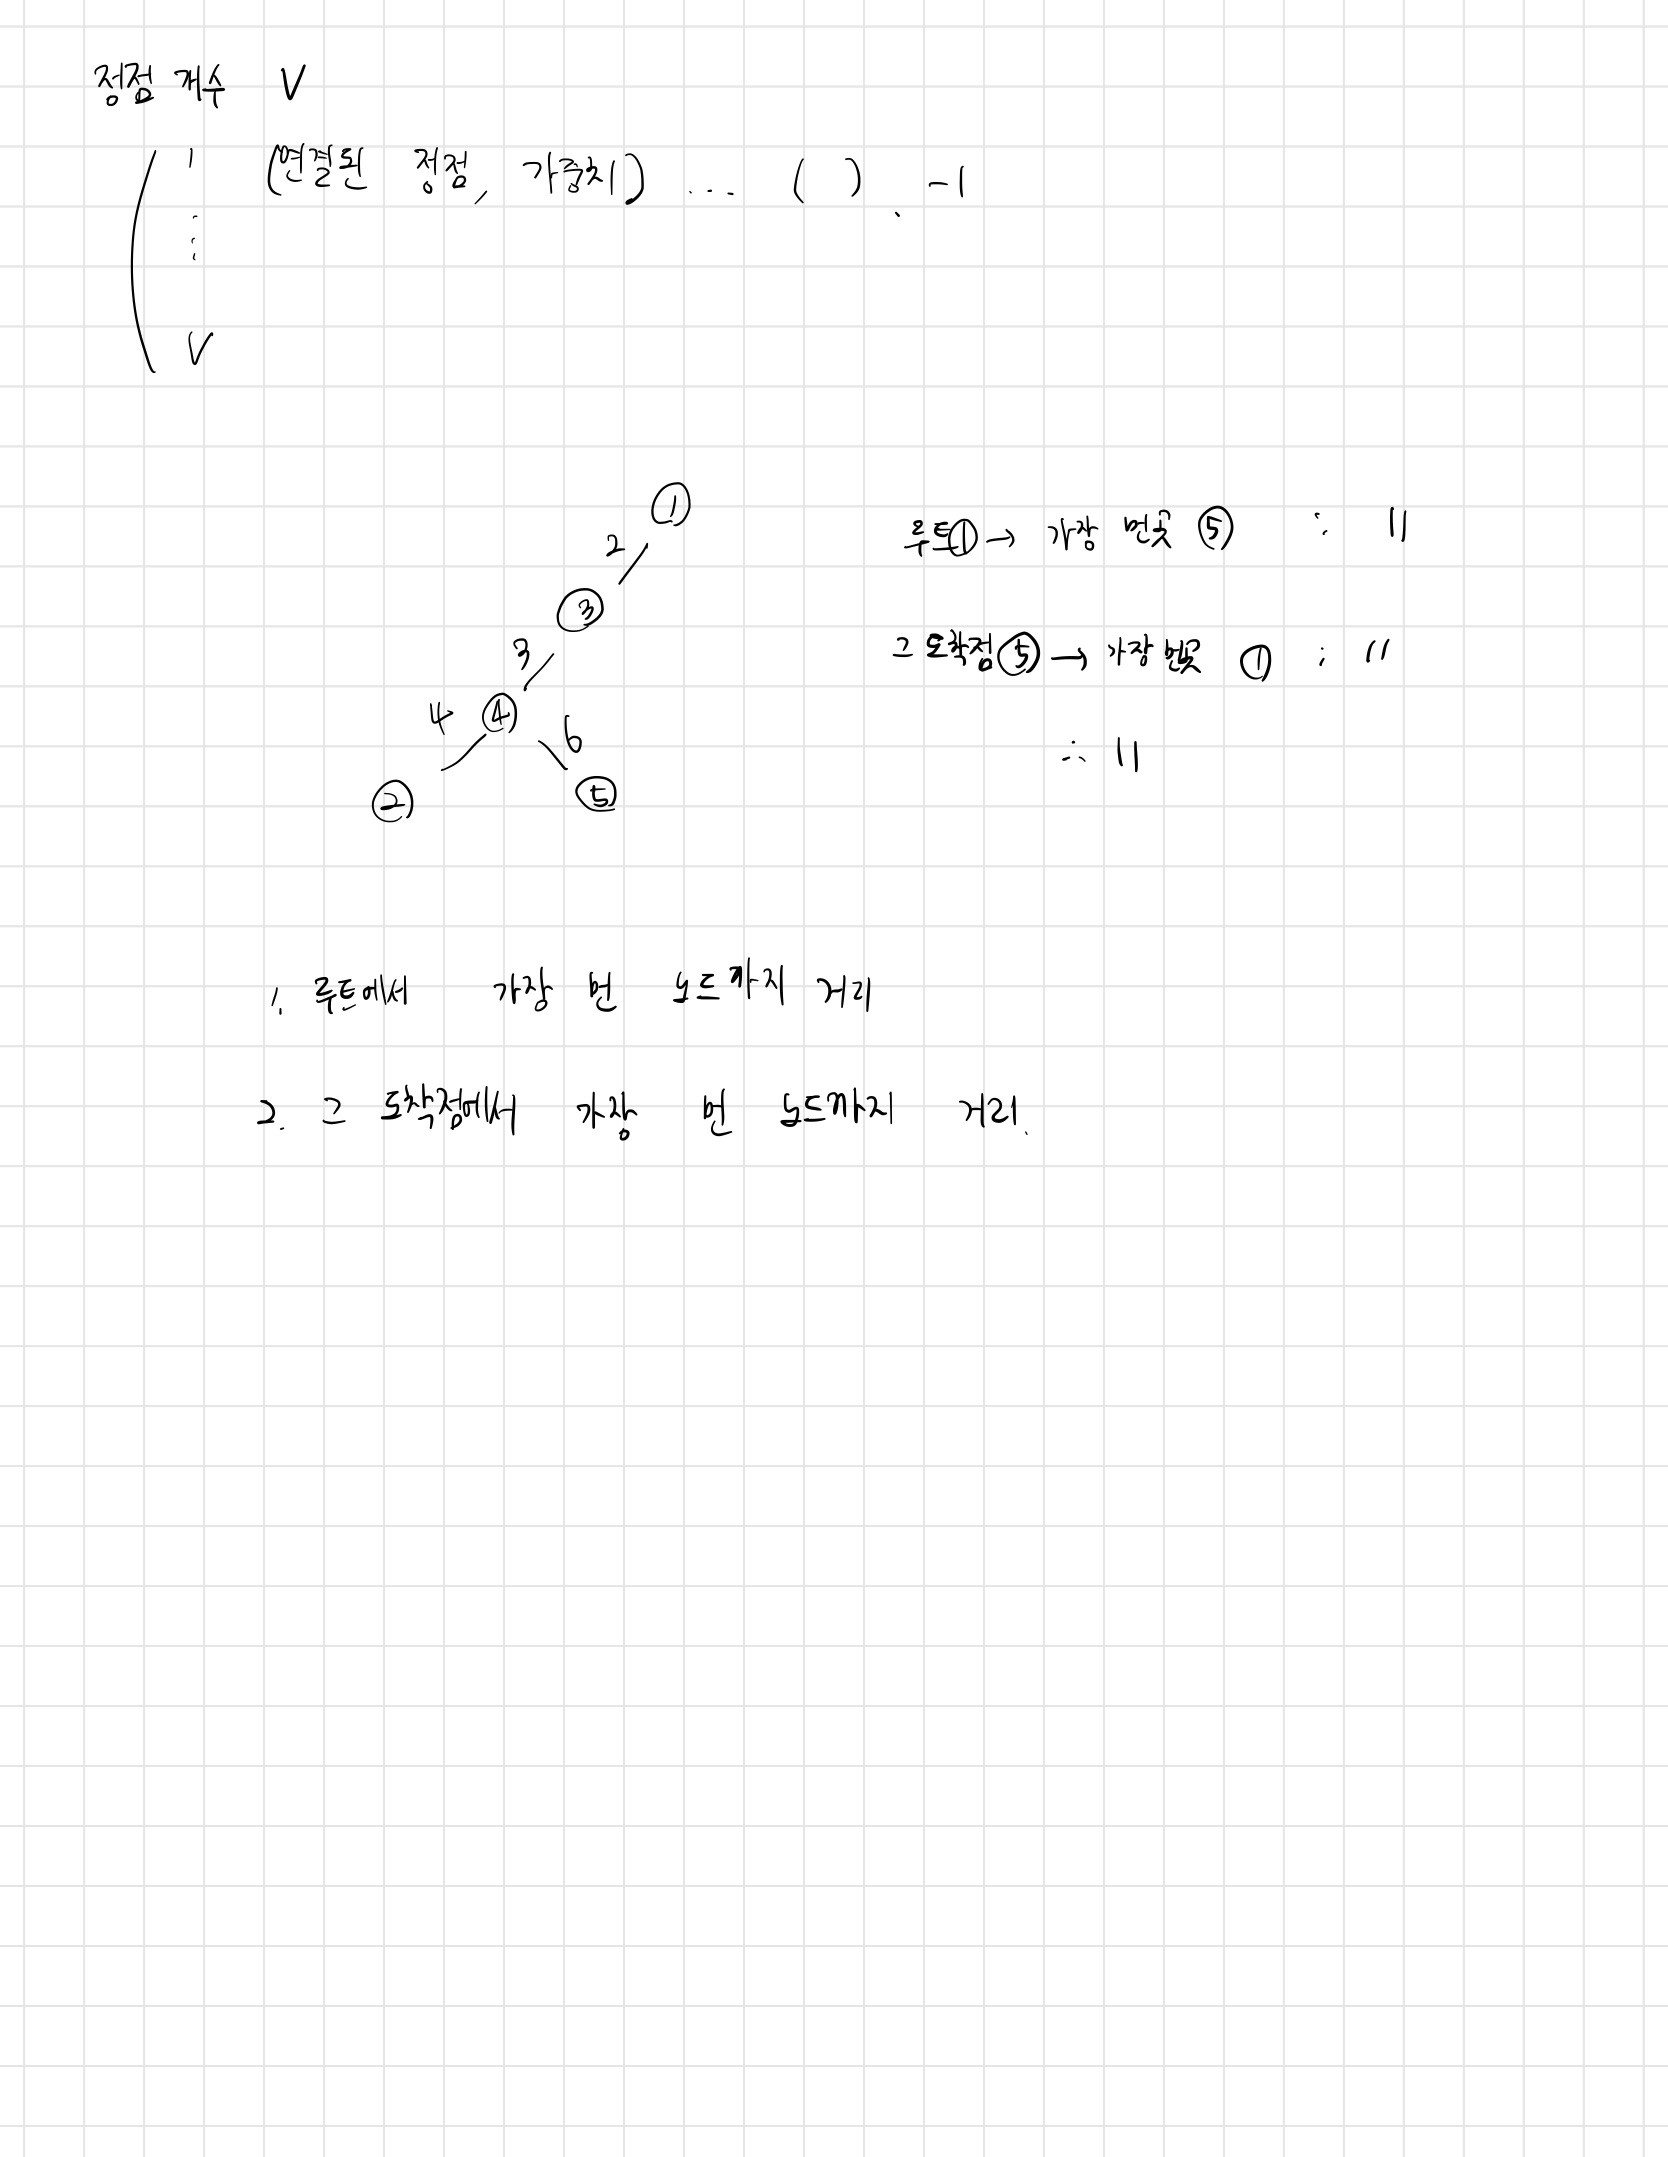 정점 개수 V
1 (연결된 정점, 가중치) ... ( ), -1
⋮
V
①
2
③
3
4 ④ 6
② ⑤
루트① → 가장 먼곳 ⑤ : 11
그 도착점⑤ → 가장 먼곳 ① : 11
∴ 11
1. 루트에서 가장 먼 노드까지 거리
2. 그 도착점에서 가장 먼 노드까지 거리.